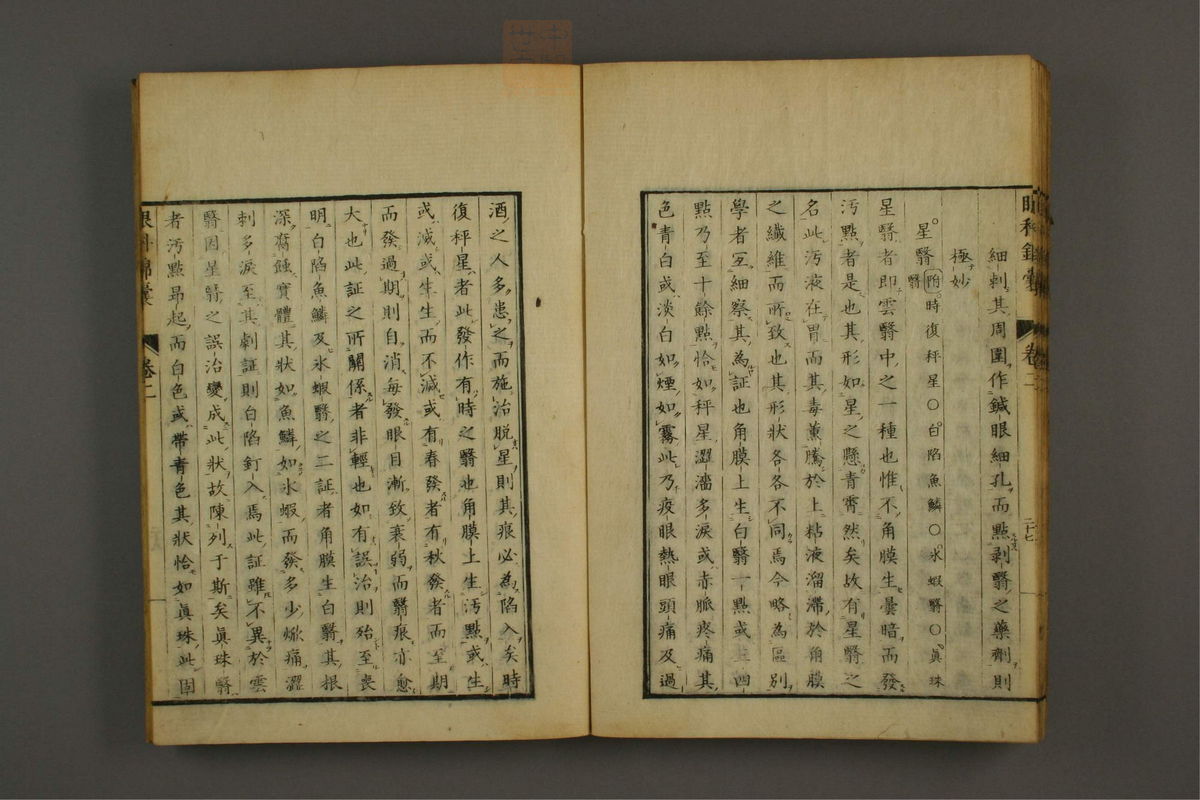 眼科錦囊 卷二 二十七
細刺其周圍作鍼眼細孔而點剥翳之藥劑則
極妙
星翳 附 時復秤星○白陷魚鱗○氷蝦翳○眞珠
翳
星翳者即雲翳中之一種也惟不角膜生曇暗而發
汚點者是也其形如星之懸青霄然矣故有星翳之
名此汚液在胃而其毒薰騰於上粘液溜滯於角膜
之纖維而所致也其形狀各各不同焉今略為區別
學者宜細察其為証也角膜上生白翳一點或三四
點乃至十餘點恰如秤星澀濇多淚或赤脈疼痛其
色青白或淡白如煙如霧此乃疫眼熱眼頭痛及過
酒之人多患之而施治脱星則其痕必為陷入矣時
復秤星者此發作有時之翳也角膜上生汚點或生
或滅或生生而不滅或有春發者有秋發者而至期
而發過期則自消每發眼目漸致衰弱而翳痕亦愈
大也此証之所關係者非輕也如有誤治則殆至喪
明白陷魚鱗及氷蝦翳之二証者角膜生白翳其根
深腐蝕實體其狀如魚鱗如氷蝦而發多少焮痛澀
刺多淚至其劇証則白陷釘入焉此証雖不異於雲
翳因星翳之誤治變成此狀故陳列于斯矣眞珠翳
者汚點昂起而白色或帶青色其狀恰如眞珠此固
眼科錦囊 卷二